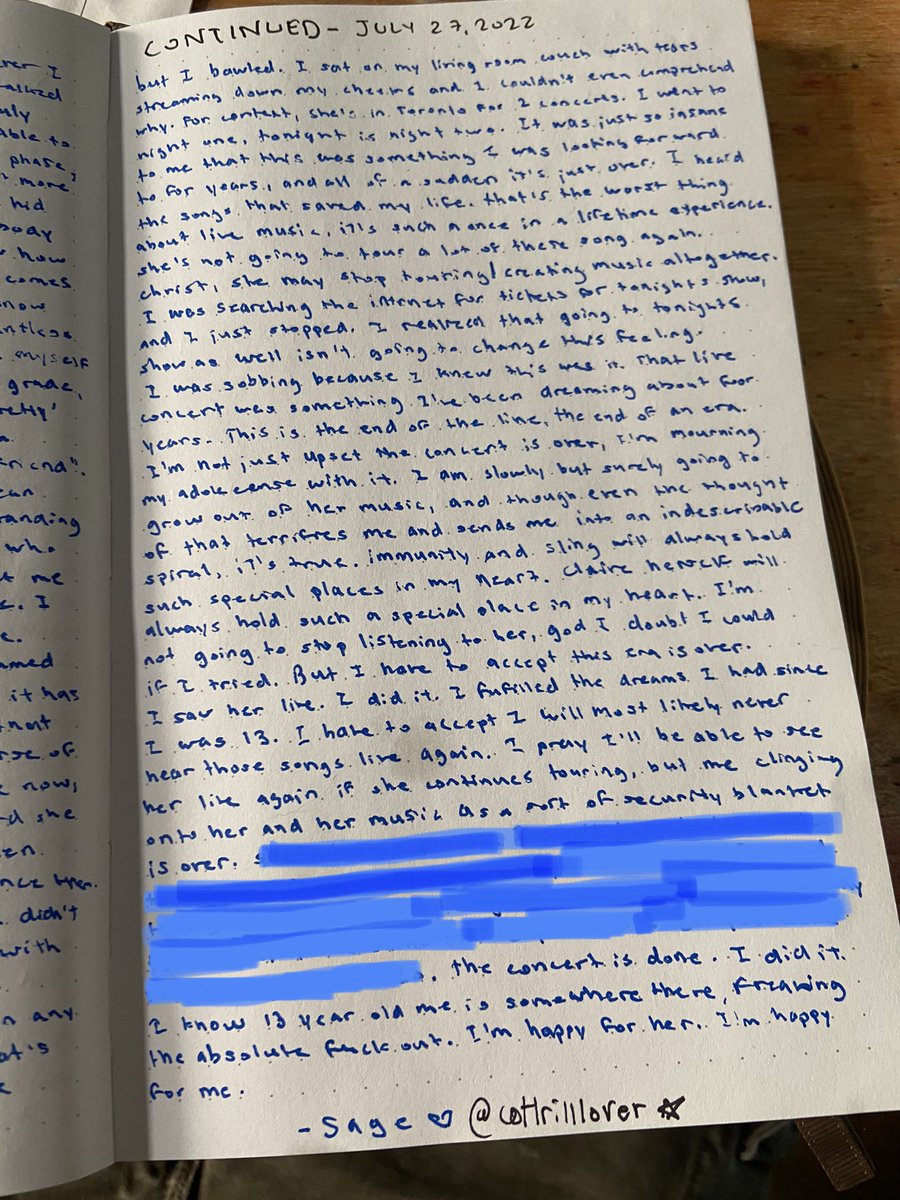 CONTINUED - JULY 27, 2022
but I bawled. I sat on my living room couch with tears
streaming down my cheeks and I couldn't even comprehend
why. For context, she's in Toronto for 2 concerts. I went to
night one, tonight is night two. It was just so insane
to me that this was something I was looking forward
to for years, and all of a sudden it's just over. I heard
the songs that saved my life. that's the worst thing
about live music, it's such a once in a lifetime experience.
she's not going to tour a lot of these song again.
christ, she may stop touring/creating music altogether.
I was searching the internet for tickets for tonights show,
and I just stopped. I realized that going to tonights
show as well isn't going to change this feeling.
I was sobbing because I knew this was it. That live
concert was something I've been dreaming about for
years. This is the end of the line, the end of an era.
I'm not just upset the concert is over, I'm mourning
my adolecense with it. I am slowly but surely going to
grow out of her music, and though even the thought
of that terrifies me and sends me into an indescribable
spiral, it's true. immunity and sling will always hold
such special places in my heart. Claire herself will
always hold such a special place in my heart. I'm
not going to stop listening to her, god I doubt I could
if I tried. But I have to accept this era is over.
I saw her live. I did it. I fufilled the dreams I had since
I was 13. I hate to accept I will most likely never
hear those songs live again. I pray I'll be able to see
her live again if she continues touring, but me clinging
onto her and her music as a sort of security blanket
is over.
. the concert is done. I did it.
I know 13 year old me is somewhere there, freaking
the absolute fuck out. I'm happy for her. I'm happy
for me.
- Sage ♡ @cottrilllover ☆
ver I
alked
uly
able to
phase,
more
hid
body
how
comes
now
antless
myself
grade,
retty'
a
friend".
can
randing
who
t me
e. I
e.
amed
it has
that
rse of
e now,
d she
en
nce then.
didn't
with
n any
at's